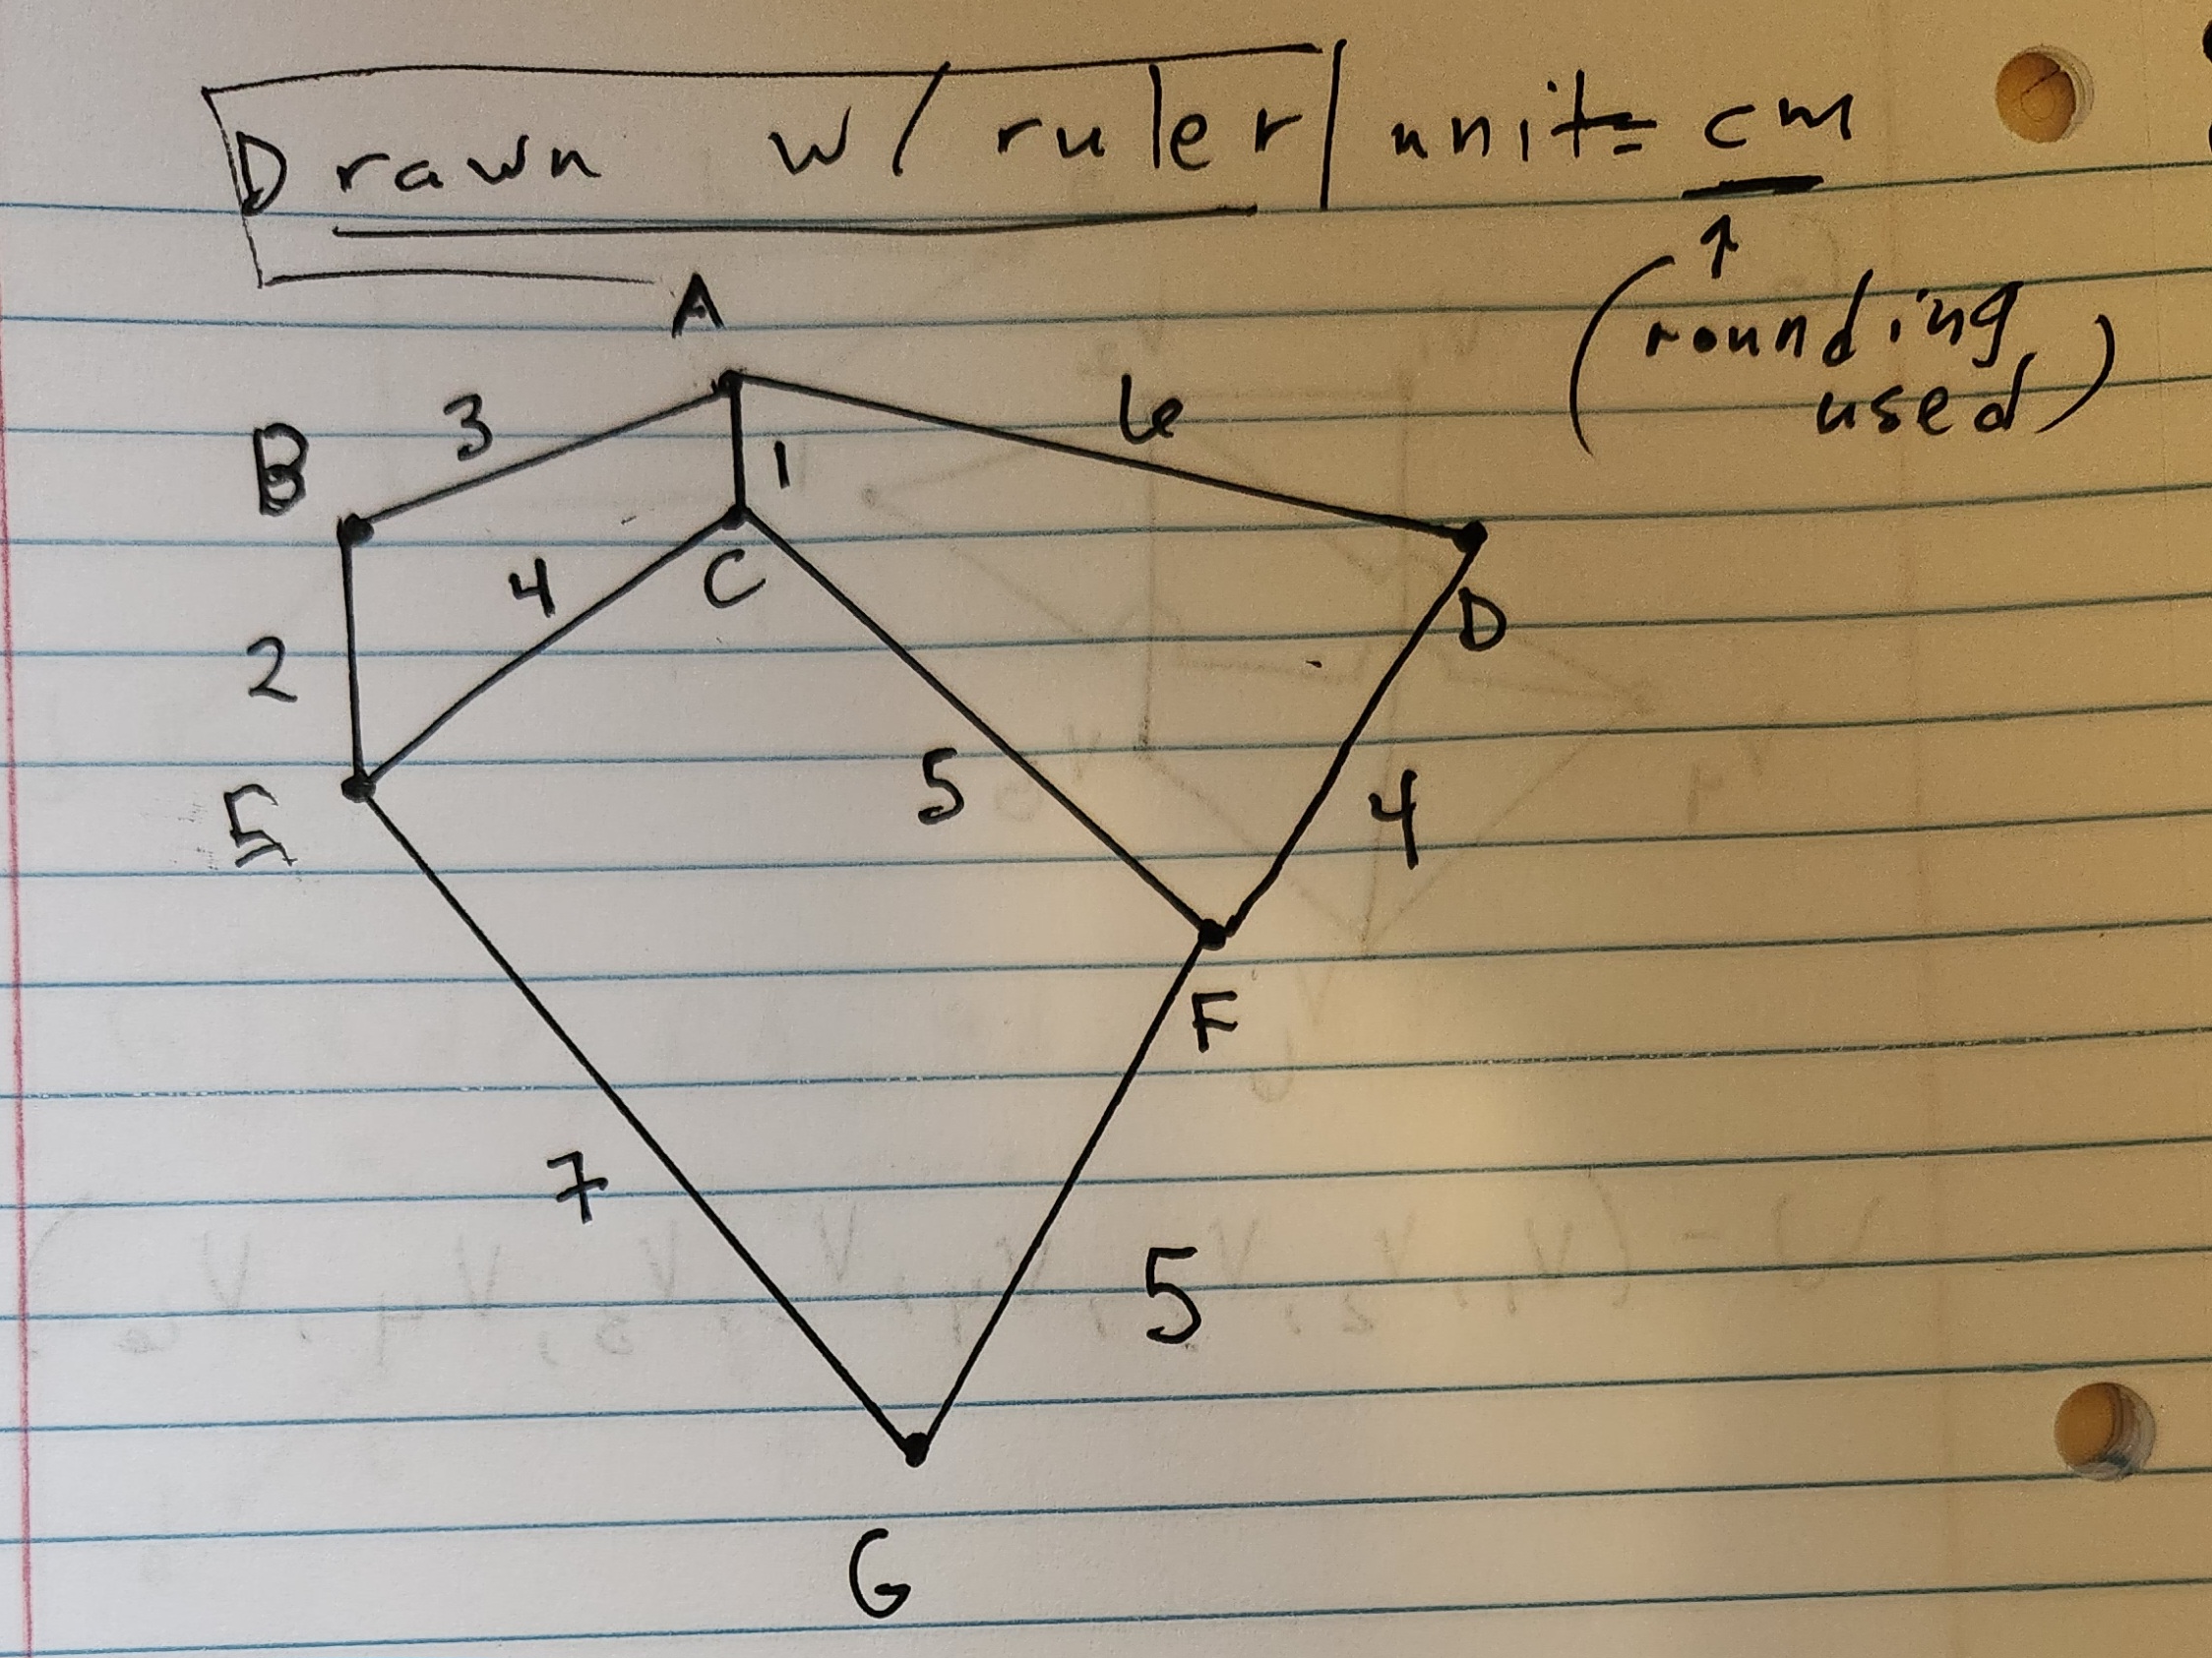 Drawn w/ ruler/unit= cm
↑
(rounding
used)
A
B 3 6
1
4 C
D
2
5 4
5
F
7
5
G